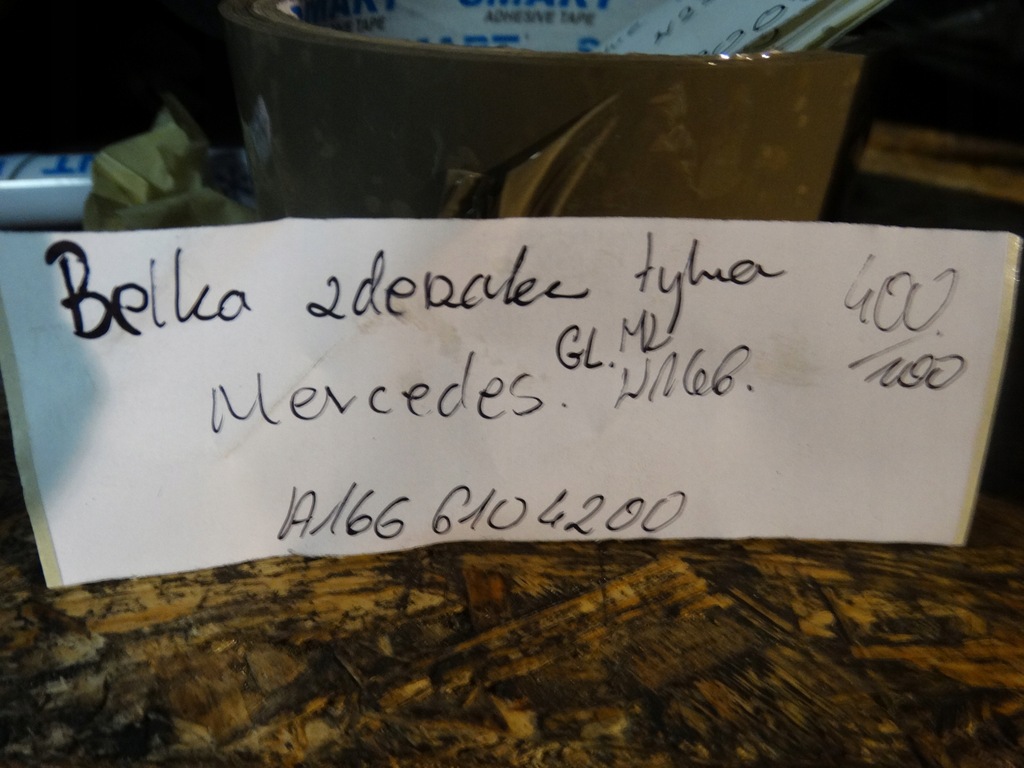 SMART SMART
ADHESIVE TAPE
Belka zderzaka tylna 400
GL. ML /100
Mercedes. W166.
A166 610 4200